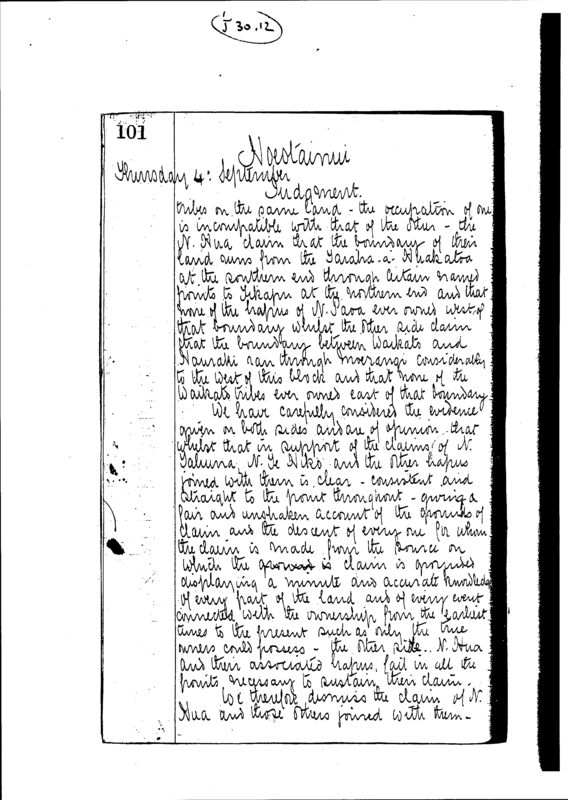 J 30.12
101
Thursday 4: September
Judgment.
tribes on the same land - the occupation of one
is incompatible with that of the other - the
N. Hua claim that the boundary of their
land runs from the
at the southern end through certain named
points to at the northern end and that
none of the hapus of N. ever owned west of
that boundary whilst the other side claim
that the boundary between Waikato and
Hauraki ran through considerably
to the west of this block and that none of the
Waikato tribes ever owned east of that boundary
We have carefully considered the evidence
given on both sides and are of opinion that
whilst that in support of the claims of N.
N. Te and the other hapus
joined with them is clear - consistent and
straight to the point throughout - giving a
fair and unshaken account of the grounds of
claim and the descent of every one for whom
the claim is made from the source on
which the claim is grounded
displaying a minute and accurate knowledge
of every part of the land and of every event
connected with the ownership from the earliest
times to the present such as only the true
owners could possess - the other side.. N. Hua
and their associated hapus, fail in all the
points necessary to sustain their claim.
We therefore dismiss the claim of N.
Hua and those others joined with them -